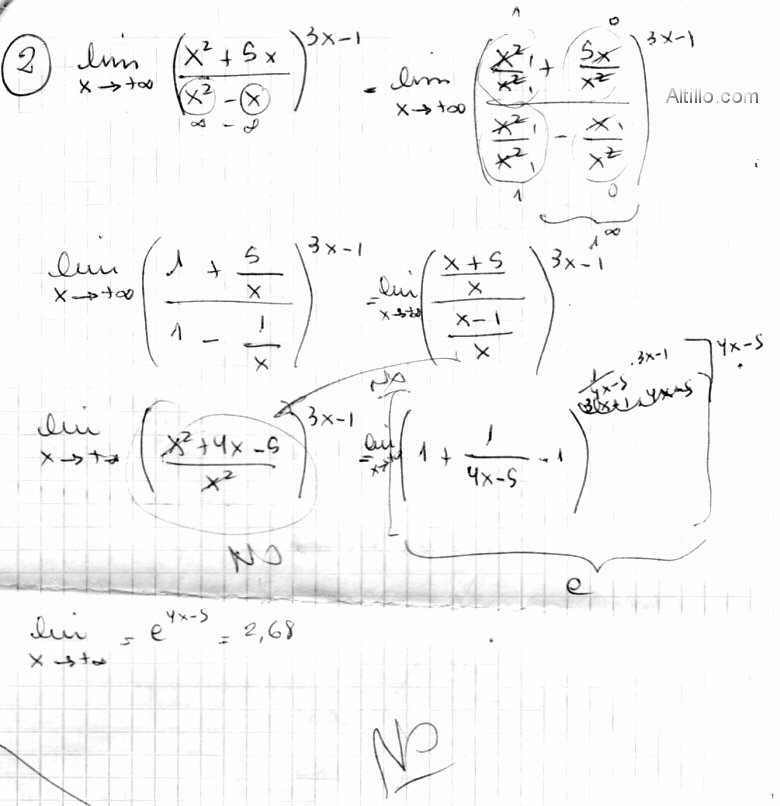 2 lim x→+∞ ((x² + 5x)/(x² - x))^(3x-1) = lim x→+∞ ((x²/x² + 5x/x²)/(x²/x² - x/x²))^(3x-1)
∞ - ∞ 1 0 1 0 1^∞
Altillo.com
lim x→+∞ ((1 + 5/x)/(1 - 1/x))^(3x-1) = lim x→+∞ (((x+5)/x)/((x-1)/x))^(3x-1)
NO
lim x→+∞ ((x² + 4x - 5)/x²)^(3x-1) = lim x→ [(1 + 1/(4x-5) - 1)]^(4x-5)
NO
e
lim x→+∞ = e^(4x-5) = 2,68
NO